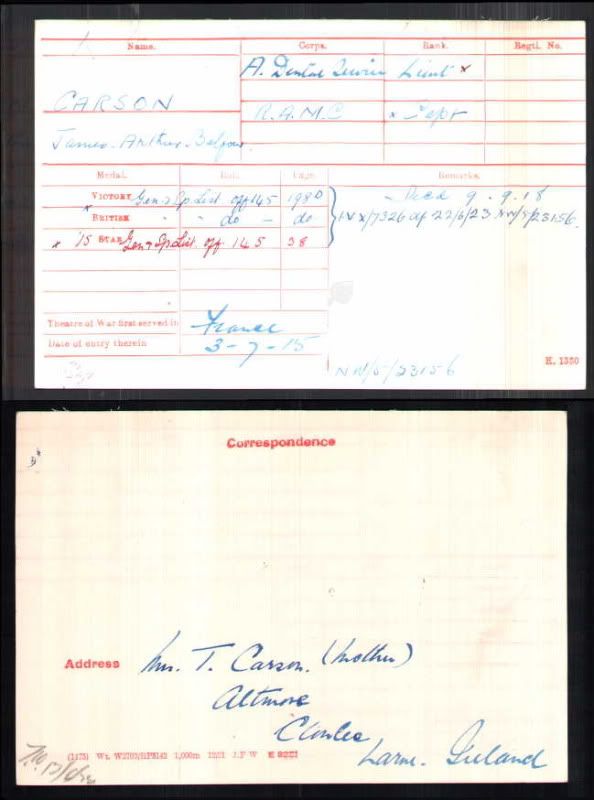 Name. Corps. Rank. Regtl. No.
A. Dental Service Lieut x
CARSON R.A.M.C x Capt
James Arthur Balfour
Medal. Roll. Page. Remarks.
VICTORY Gen & Sp List off 145 198D Died 9.9.18
x BRITISH " " do - do IV X/7326 df 22/6/23 NW/5/23156.
x '15 STAR Gen & Sp List off 145 38
Theatre of War first served in France
Date of entry therein 3-7-15
NW/5/23156
K. 1380
Correspondence
Address Mrs. T. Carson. (Mother)
Altmore
Larne. Ireland
(1473) Wt. W2703/RP8142 1,000m 12/21 J.P W